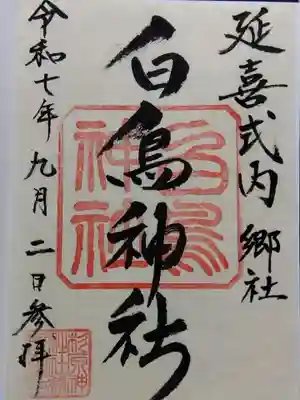 延喜式内 郷社
白鳥神社
令和七年九月二日参拝
白鳥
神社